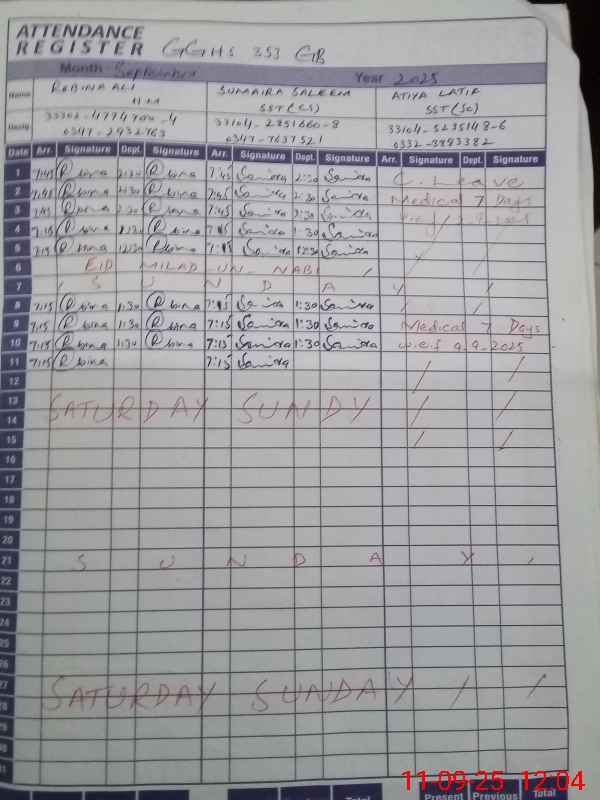 ATTENDANCE
REGISTER GGHS 353 GB
Month September Year 2025
Name ROBINA ALI SUMAIRA SALEEM ATIYA LATIF
HM SST(CS) SST(SC)
Desig 33104-2851660-8 33104-5235148-6
0347-2932763 0347-7637521 0332-3893382
Date Arr. Signature Dept. Signature Arr. Signature Dept. Signature Arr. Signature Dept. Signature
1 7:45 Robina 2:30 Robina 7:45 Samira 2:30 Samira C. Leave
2 7:45 Robina 2:30 Robina 7:45 Samira 2:30 Samira Medical 7 Days
3 7:45 Robina 2:30 Robina 7:45 Samira 2:30 Samira
4 7:15 Robina Robina Samira 1:30 Samira
5 7:15 Robina 12:30 Robina 7:15 Samira 12:30 Samira /
6 EID MILAD-UN-NABI /
7 / S U N D A Y /
8 7:15 Robina 1:30 Robina 7:15 Samira 1:30 Samira / /
9 7:15 Robina 1:30 Robina 7:15 Samira 1:30 Samira Medical 7 Days
10 7:15 Robina 1:30 Robina 7:15 Samira 1:30 Samira w.e.f 9.9.2025
11 7:15 Robina 7:15 Samira / /
12
13 SATURDAY SUNDY / /
14
15 / /
16
17
18
19
20
21 S U N D A Y /
22
23
24
25
26
27 SATURDAY SUNDAY / /
28
29
30
31
Total Present Previous Total
11-09-25 12:04